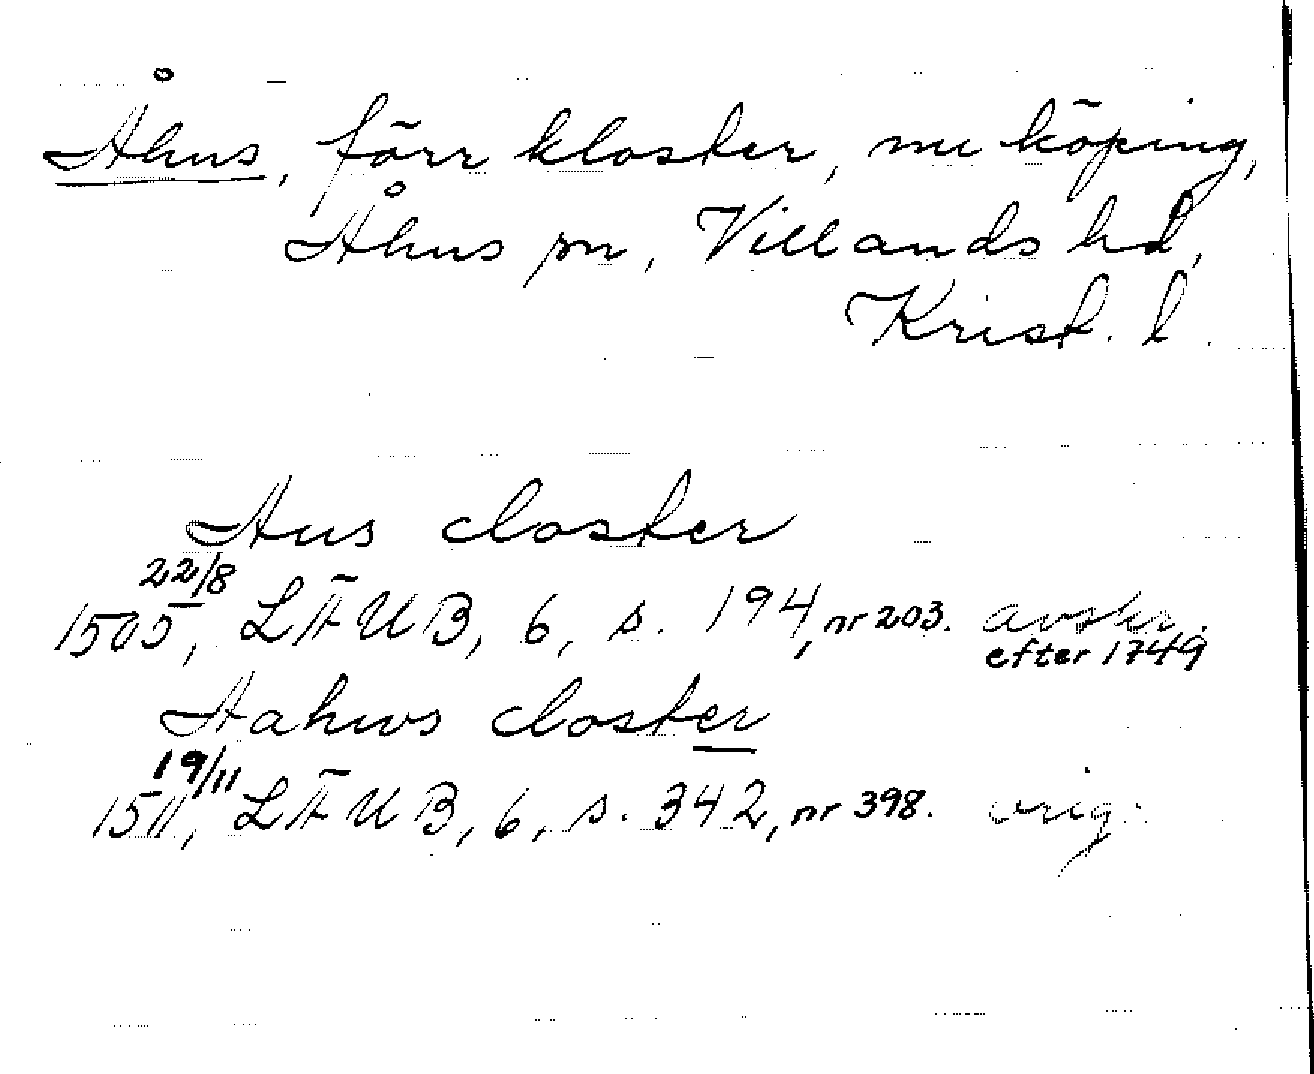 Åhus, förr kloster, nu köping,
Åhus sn, Villands hd,
Krist. l.
Aus closter
22/8
1505, LÄUB, 6, s. 194, nr 203. avskr.
efter 1749
Aahws closter
19/11
1511, LÄUB, 6, s. 342, nr 398. orig.